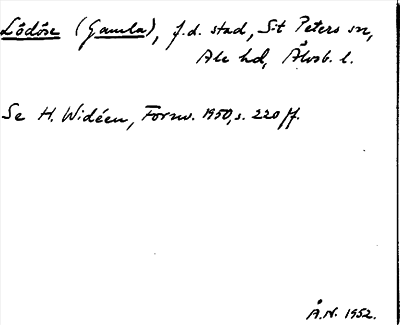 Lödöse (Gamla), f.d. stad, S:t Peters sn,
Ale hd, Älvsb. l.
Se H. Widéen, Fornv. 1950, s. 220 ff.
Å.N. 1952.